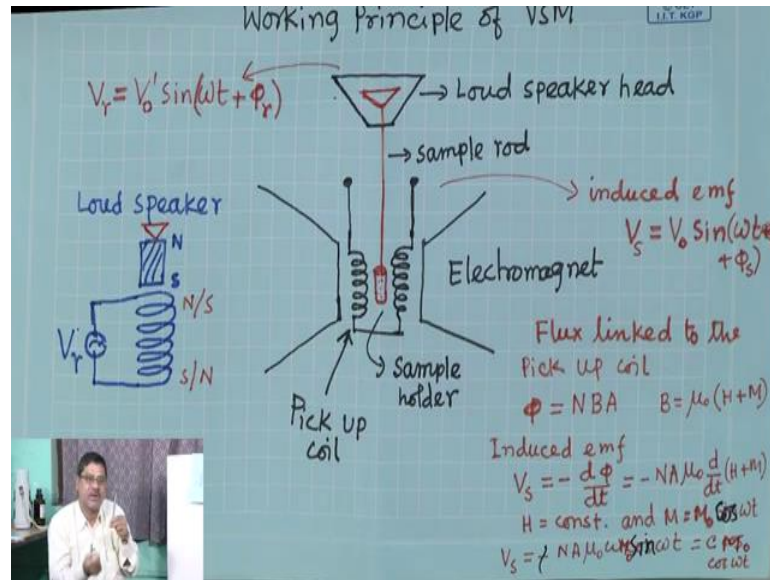 Working Principle of VSM
I.I.T. KGP
Vᵣ = V₀' sin(ωt + φᵣ)
→ Loud speaker head
→ sample rod
induced emf
Vₛ = V₀ sin(ωt
+ φₛ)
Loud speaker
N
S
N/S
Vᵣ
S/N
Electromagnet
Sample
holder
Pick up
coil
Flux linked to the
Pick up coil
φ = NBA B = μ₀(H+M)
Induced emf
Vₛ = - dφ/dt = - NAμ₀ d/dt (H+M)
H = const. and M = M₀ cos ωt
Vₛ = NAμ₀ω sin ωt =
cos ωt